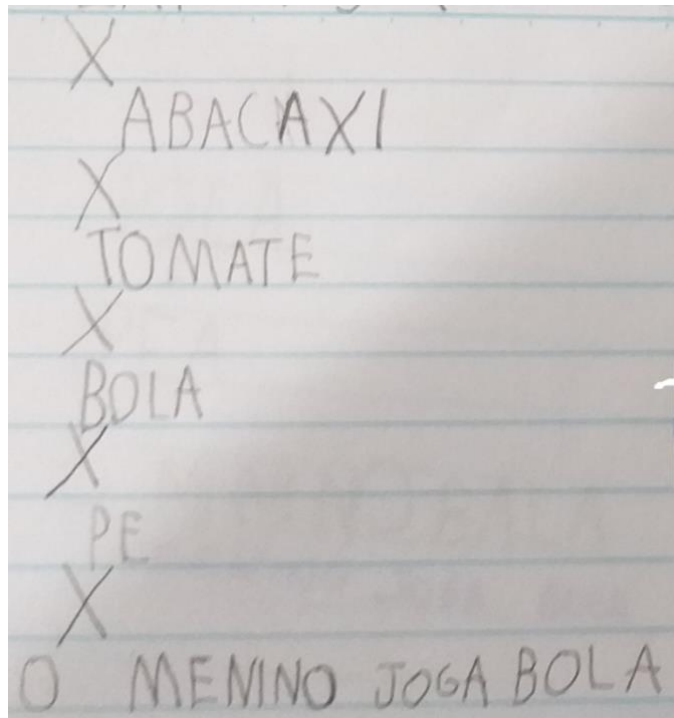 X
ABACAXI
X
TOMATE
X
BOLA
X
PE
X
O MENINO JOGA BOLA